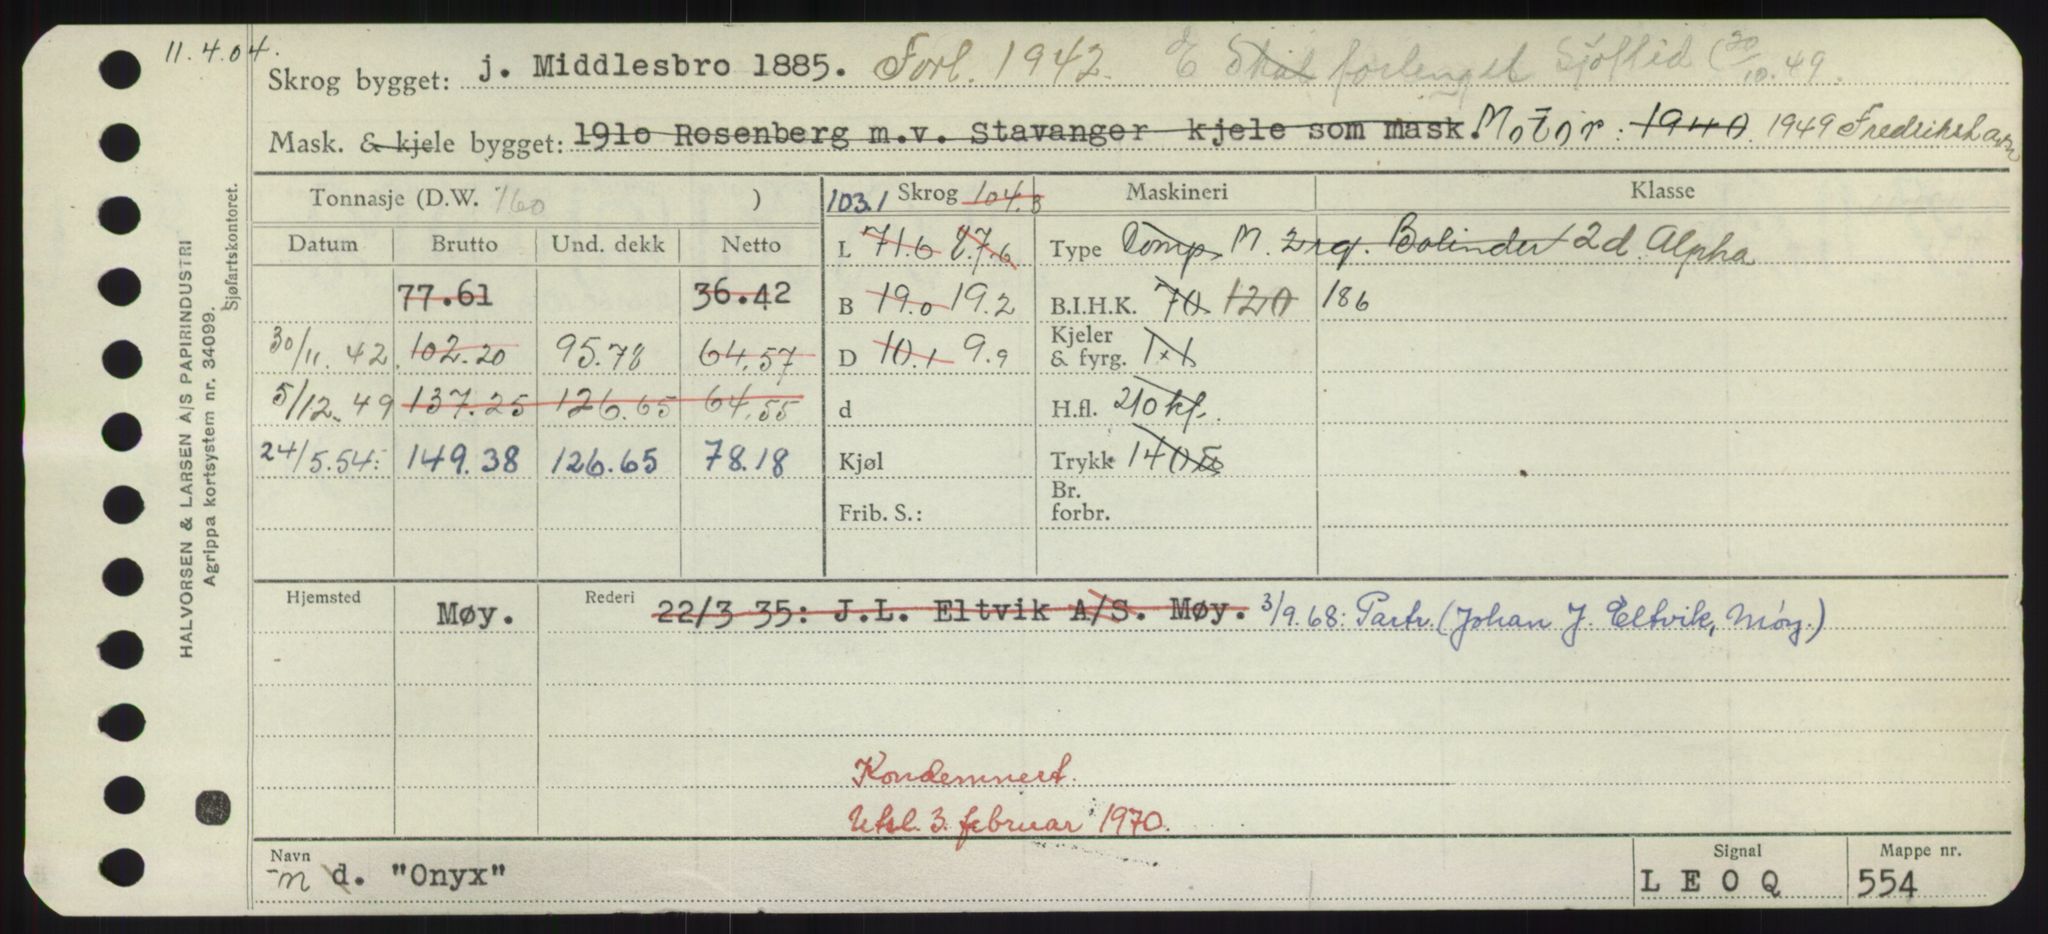 11.4.04.
Skrog bygget: j. Middlesbro 1885. Forl. 1942. E Skal forlenget Sjöfted (20/10.49.
Mask. & kjele bygget: 1910 Rosenberg m.v. Stavanger kjele som mask. Motor: 1940. 1949 Fredrikshavn
Tonnasje (D.W. 160 )
103.1 Skrog 104.3
Maskineri
Klasse
Datum Brutto Und. dekk Netto
L 71.6 87.6
Type Comp. M. 2 rq. Bolinder 2 d. Alpha
77.61 36.42
B 19.0 19.2
B.I.H.K. 70 120 186
30/11.42. 102.20 95.78 64.57
D 10.1 9.9
Kjeler
& fyrg. 1x1
5/12.49 137.25 126.65 64.55
d
H.fl. 210 kf.
24/5.54: 149.38 126.65 78.18
Kjøl
Trykk 140
Frib. S.:
Br.
forbr.
Hjemsted Møy. Rederi 22/3 35: J.L. Eltvik A/S. Møy. 3/9.68: Partr. (Johan J. Eltvik, Møy.)
Kondemnert.
Utsl. 3. februar 1970.
Navn
m d. "Onyx"
Signal
L E O Q
Mappe nr.
554
HALVORSEN & LARSEN A/S PAPIRINDUSTRI
Agrippa kortsystem nr. 34099.
Sjøfartskontoret.